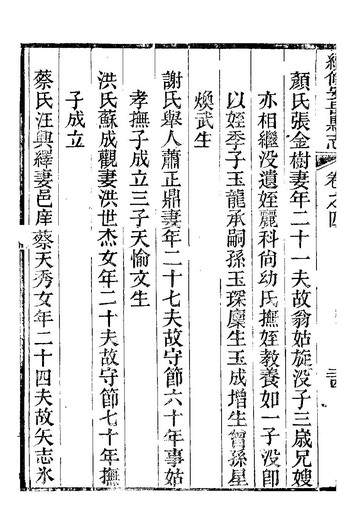 卷之四
顏氏張金樹妻年二十一夫故翁姑旋没子三歲兄嫂
亦相繼没遺姪麗科尚幼氏撫姪教養如一子没卽
以姪季子玉龍承嗣孫玉琛廪生玉成增生曾孫星
煥武生
謝氏舉人蕭正鼎妻年二十七夫故守節六十年事姑
孝撫子成立三子天愉文生
洪氏蘇成觀妻洪世杰女年二十夫故守節七十年撫
子成立
蔡氏汪興繹妻邑庠蔡天秀女年二十四夫故矢志氷